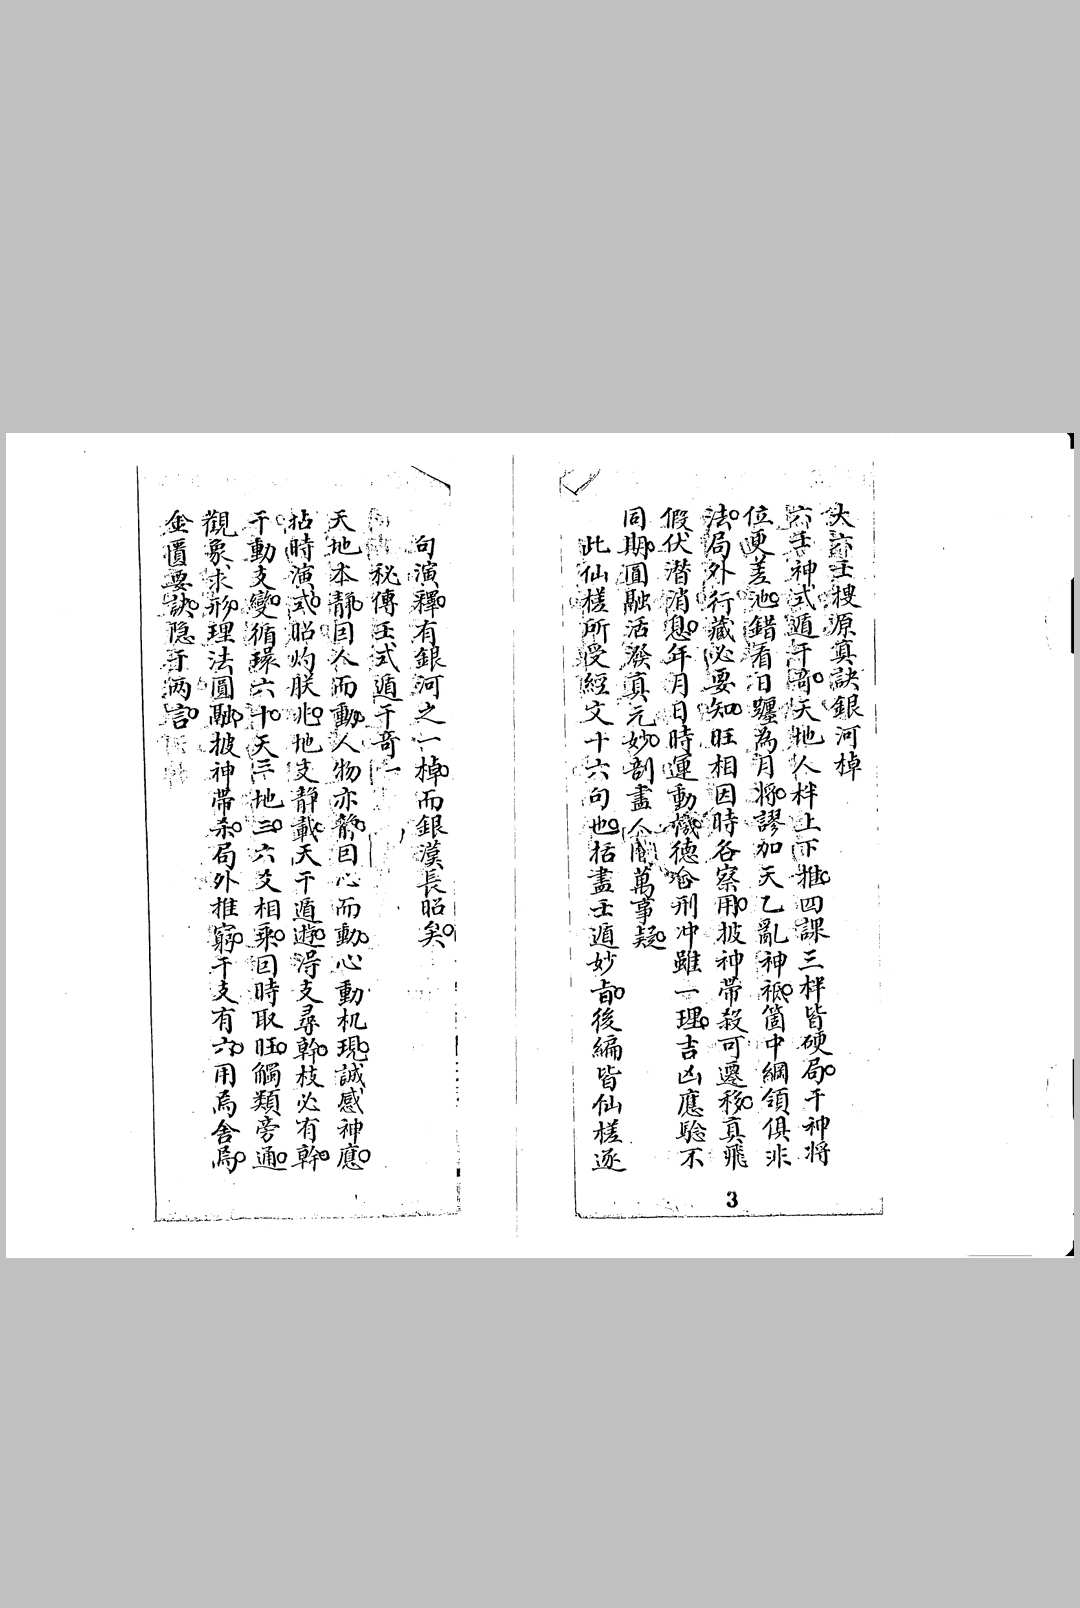 大六壬搜源真訣銀河棹
六壬神式遁干奇。天地人柈上下推。四課三柈皆硬局。干神將
位更差池。錯看日躔為月將。謬加天乙亂神祗。箇中綱領俱非
法。局外行藏必要知。旺相因時各察用。披神帶殺可遷移。真飛
假伏潜消息。年月日時運動機。德合刑冲雖一理。吉凶應驗不
同期。圓融活潑真元妙。剖盡人間萬事疑。
此仙槎所受經文十六句也。括盡壬遁妙旨。後編皆仙槎逐
3
句演釋。有銀河之一棹。而銀漢長昭矣。
秘傳壬式遁干奇一
天地本靜。因人而動。人物亦静。因心而動。心動机現。誠感神應。
拈時演式。昭灼朕兆。地支静載。天干遁遊。淂支尋幹。枝必有幹。
干動支變。循環六十。天三地三。六爻相乘。因時取旺。觸類旁通。
觀象求形。理法圓融。披神帶杀。局外推窮。干支有六。用焉舍焉。
金匱要訣。隐于两言。